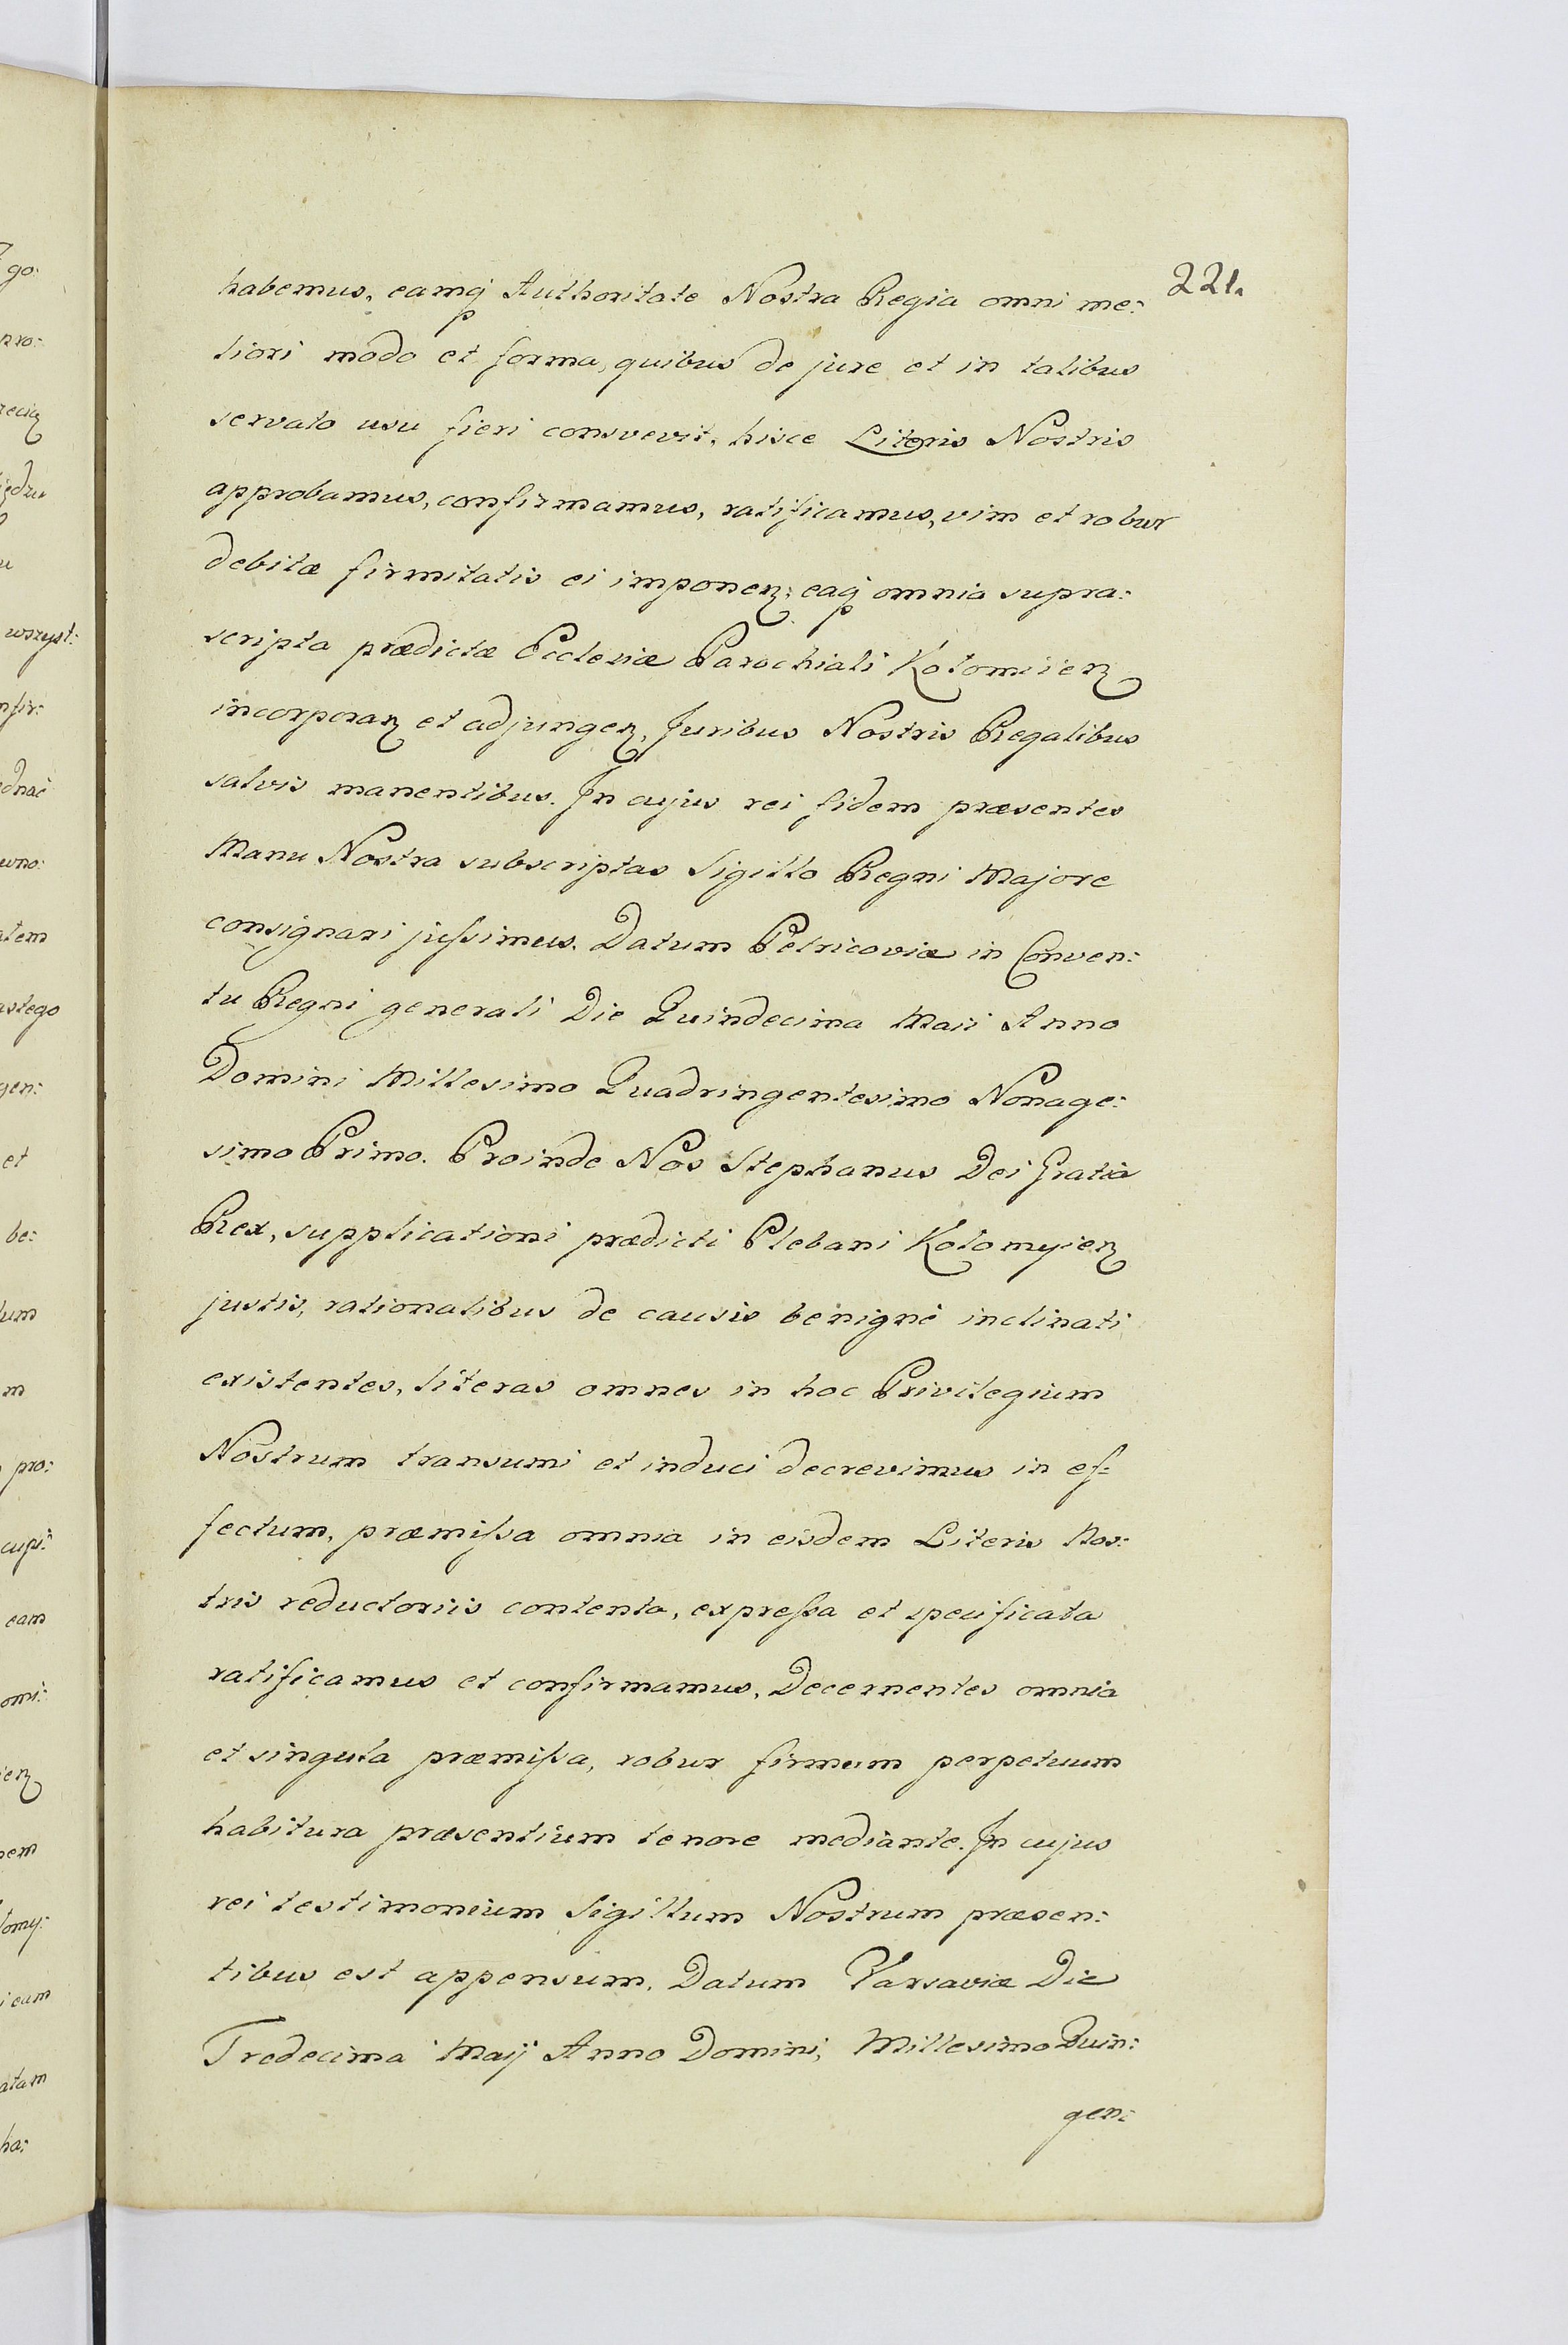 221.
habemus, eamq́ Authoritate Nostra Regia omni me:
liori modo et forma, quibus de jure et in talibus
servato usu fieri consvevit, hisce Literis Nostris
approbamus, confirmamus, ratificamus, vim et robur
debitæ firmitatis ei imponeꝝ: eaq́ omnia supra:
scripta prædictæ Ecclesiæ Parochiali Kolomiieꝝ
incorporaꝝ et adjungeꝝ, Juribus Nostris Regalibus
salvis manentibus. In cujus rei fidem præsentes
Manu Nostra subscriptas Sigillo Regni Majore
consignari jußimus. Datum Petricoviæ in Conven:
tu Regni generali Die Quindecima Maii Anno
Domini Millesimo Quadringentesimo Nonage:
simo Primo. Proinde Nos Stephanus Dei Gratia
Rex, supplicationi prædicti Plebani Kolomyieꝝ
justis, rationalibus de causis benignè inclinati
existentes, literas omnes in hoc Privilegium
Nostrum transumi et induci decrevimus in ef:
fectum, præmißa omnia in eisdem Literis Nos:
tris reductoriis contenta, expreßa et specificata
ratificamus et confirmamus, Decernentes omnia
et singula præmißa, robur firmum perpetuum
habitura præsentium tenore mediante. In cujus
rei testimonium Sigillum Nostrum præsen:
tibus est appensum. Datum Varsaviæ Die
Tredecima Maij Anno Domini, Millesimo Quin:
gen:
go:
wszyst:
et
be:
m
pro:
eam